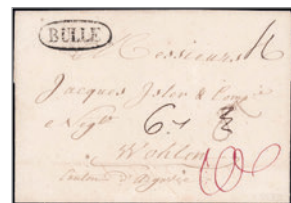 BULLE
Messieurs
Jacques Isler & Comp
Neg.ts
Wohlen
Canton d'Argovie